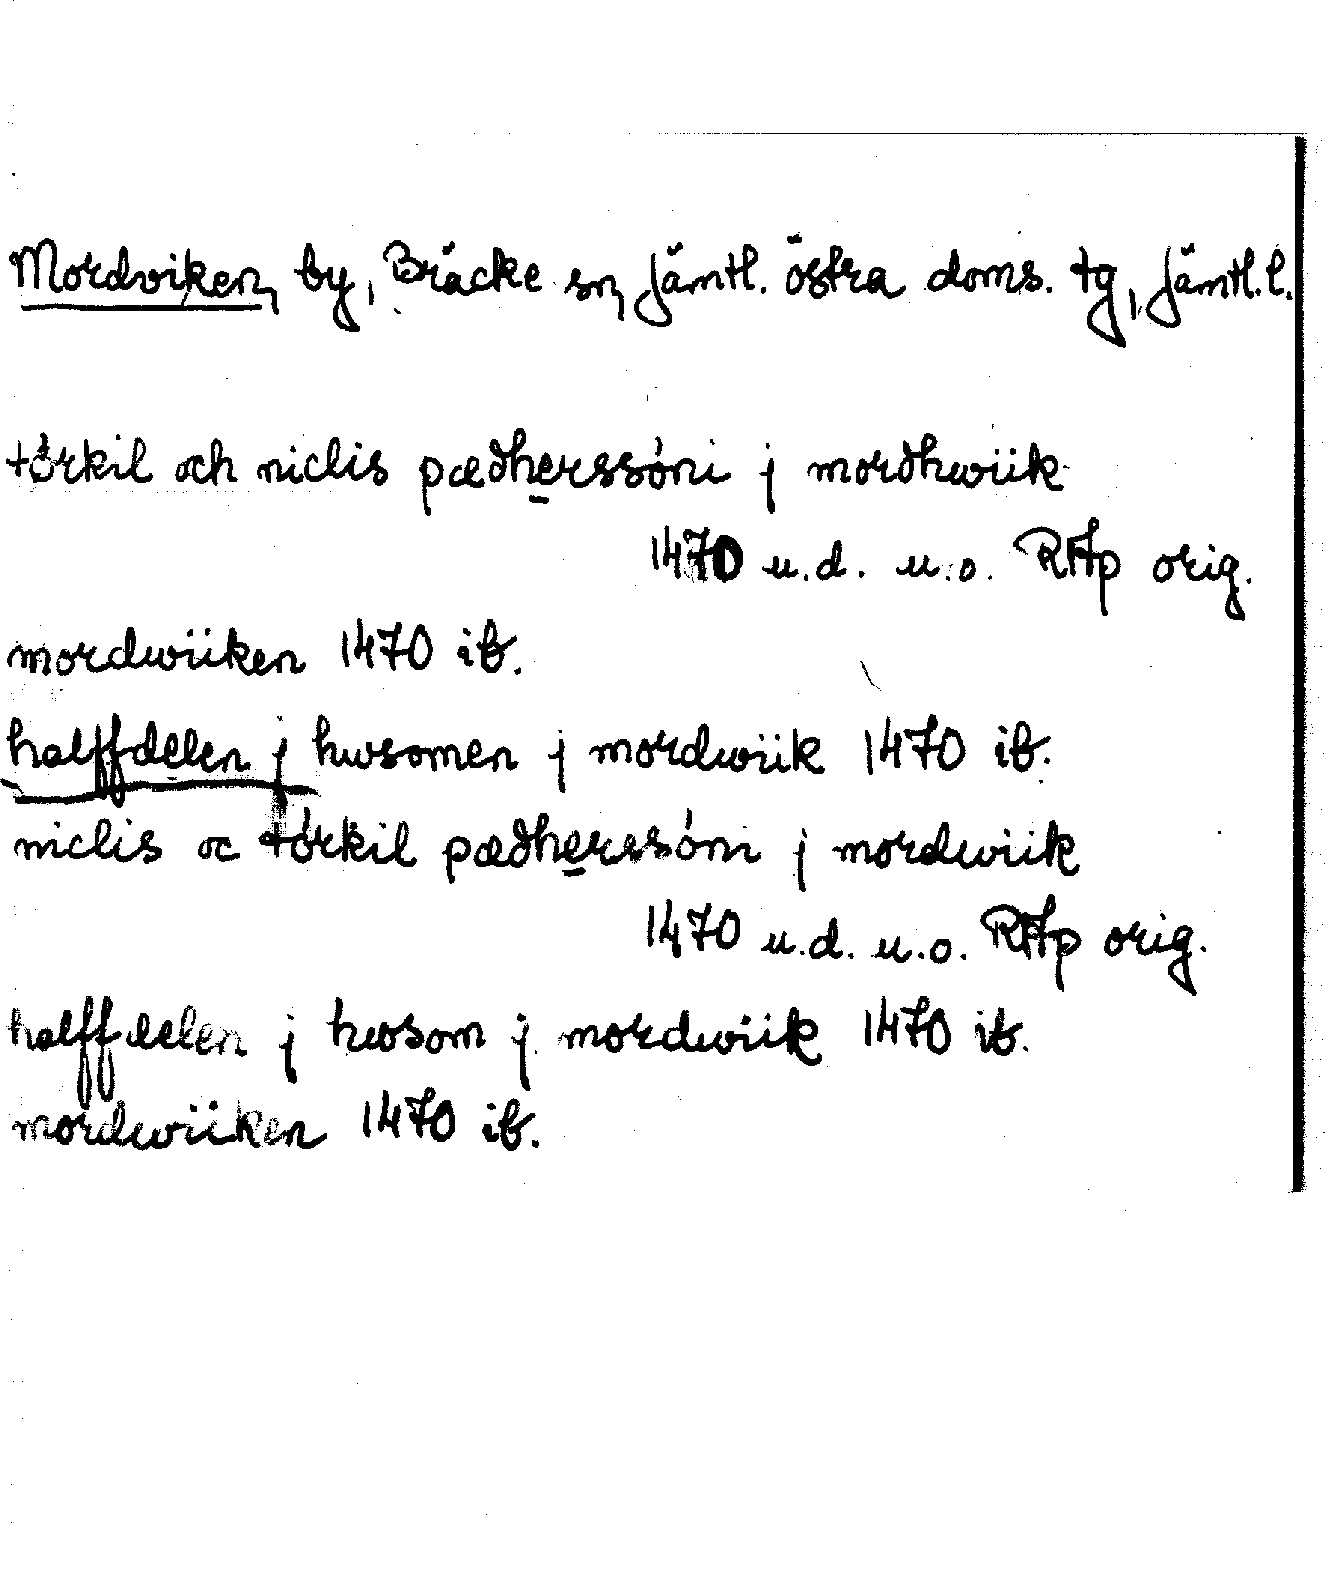 Mordviken, by, Bräcke sn, Jämtl. östra doms. tg, Jämtl. l.
tórkil och niclis pædherssóni j mordhwiik
1470 u.d. u.o. RAp orig.
mordwiiken 1470 ib.
halffdelen j hwsomen j mordwiik 1470 ib.
niclis oc tórkil pædherssóni j mordwiik
1470 u.d. u.o. RAp orig.
halffdelen j hwsom j mordwiik 1470 ib.
mordwiiken 1470 ib.